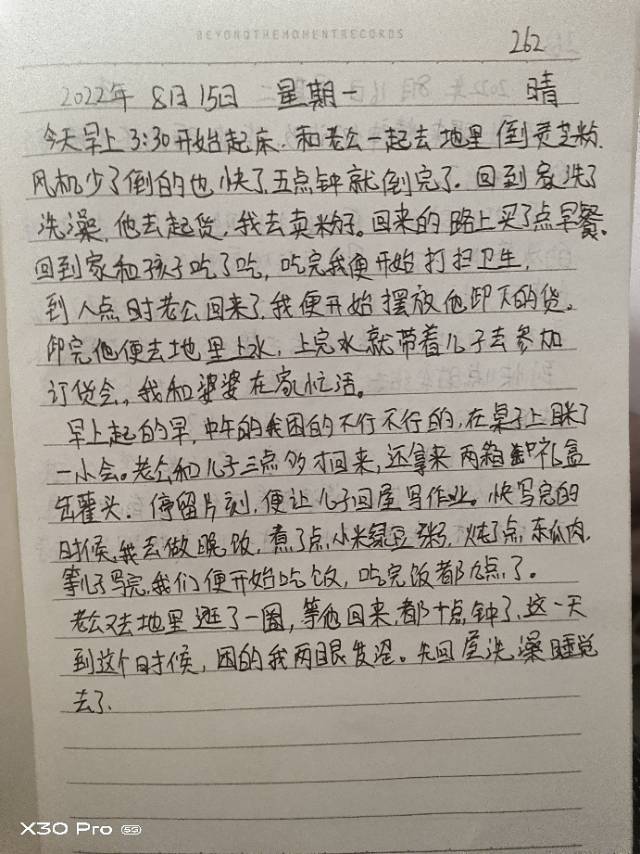 BEYONDTHEMOMENTRECORDS
262
2022年 8月15日 星期一 晴
今天早上3:30开始起床.和老公一起去地里倒灵芝粉.
风机少了倒的也快了,五点钟就倒完了.回到家洗了
洗澡,他去起货,我去卖粉.回来的路上买了点早餐.
回到家和孩子吃了吃,吃完我便开始打扫卫生,
到八点时老公回来了,我便开始摆放他卸下的货。
卸完他便去地里上水,上完水就带着儿子去参加
订货会,我和婆婆在家忙活。
早上起的早,中午的我困的不行不行的,在桌子上眯了
一小会。老公和儿子三点多才回来,还拿来两箱 礼盒
罐头.停留片刻,便让儿子回屋写作业。快写完的
时候,我去做晚饭,煮了点小米绿豆粥,炖了点冬瓜肉,
等儿子写完,我们便开始吃饭,吃完饭都九点了。
老公又去地里逛了一圈,等他回来,都十点钟了,这一天
到这个时候,困的我两眼发涩。先回屋洗澡睡觉
去了.
X30 Pro 5G